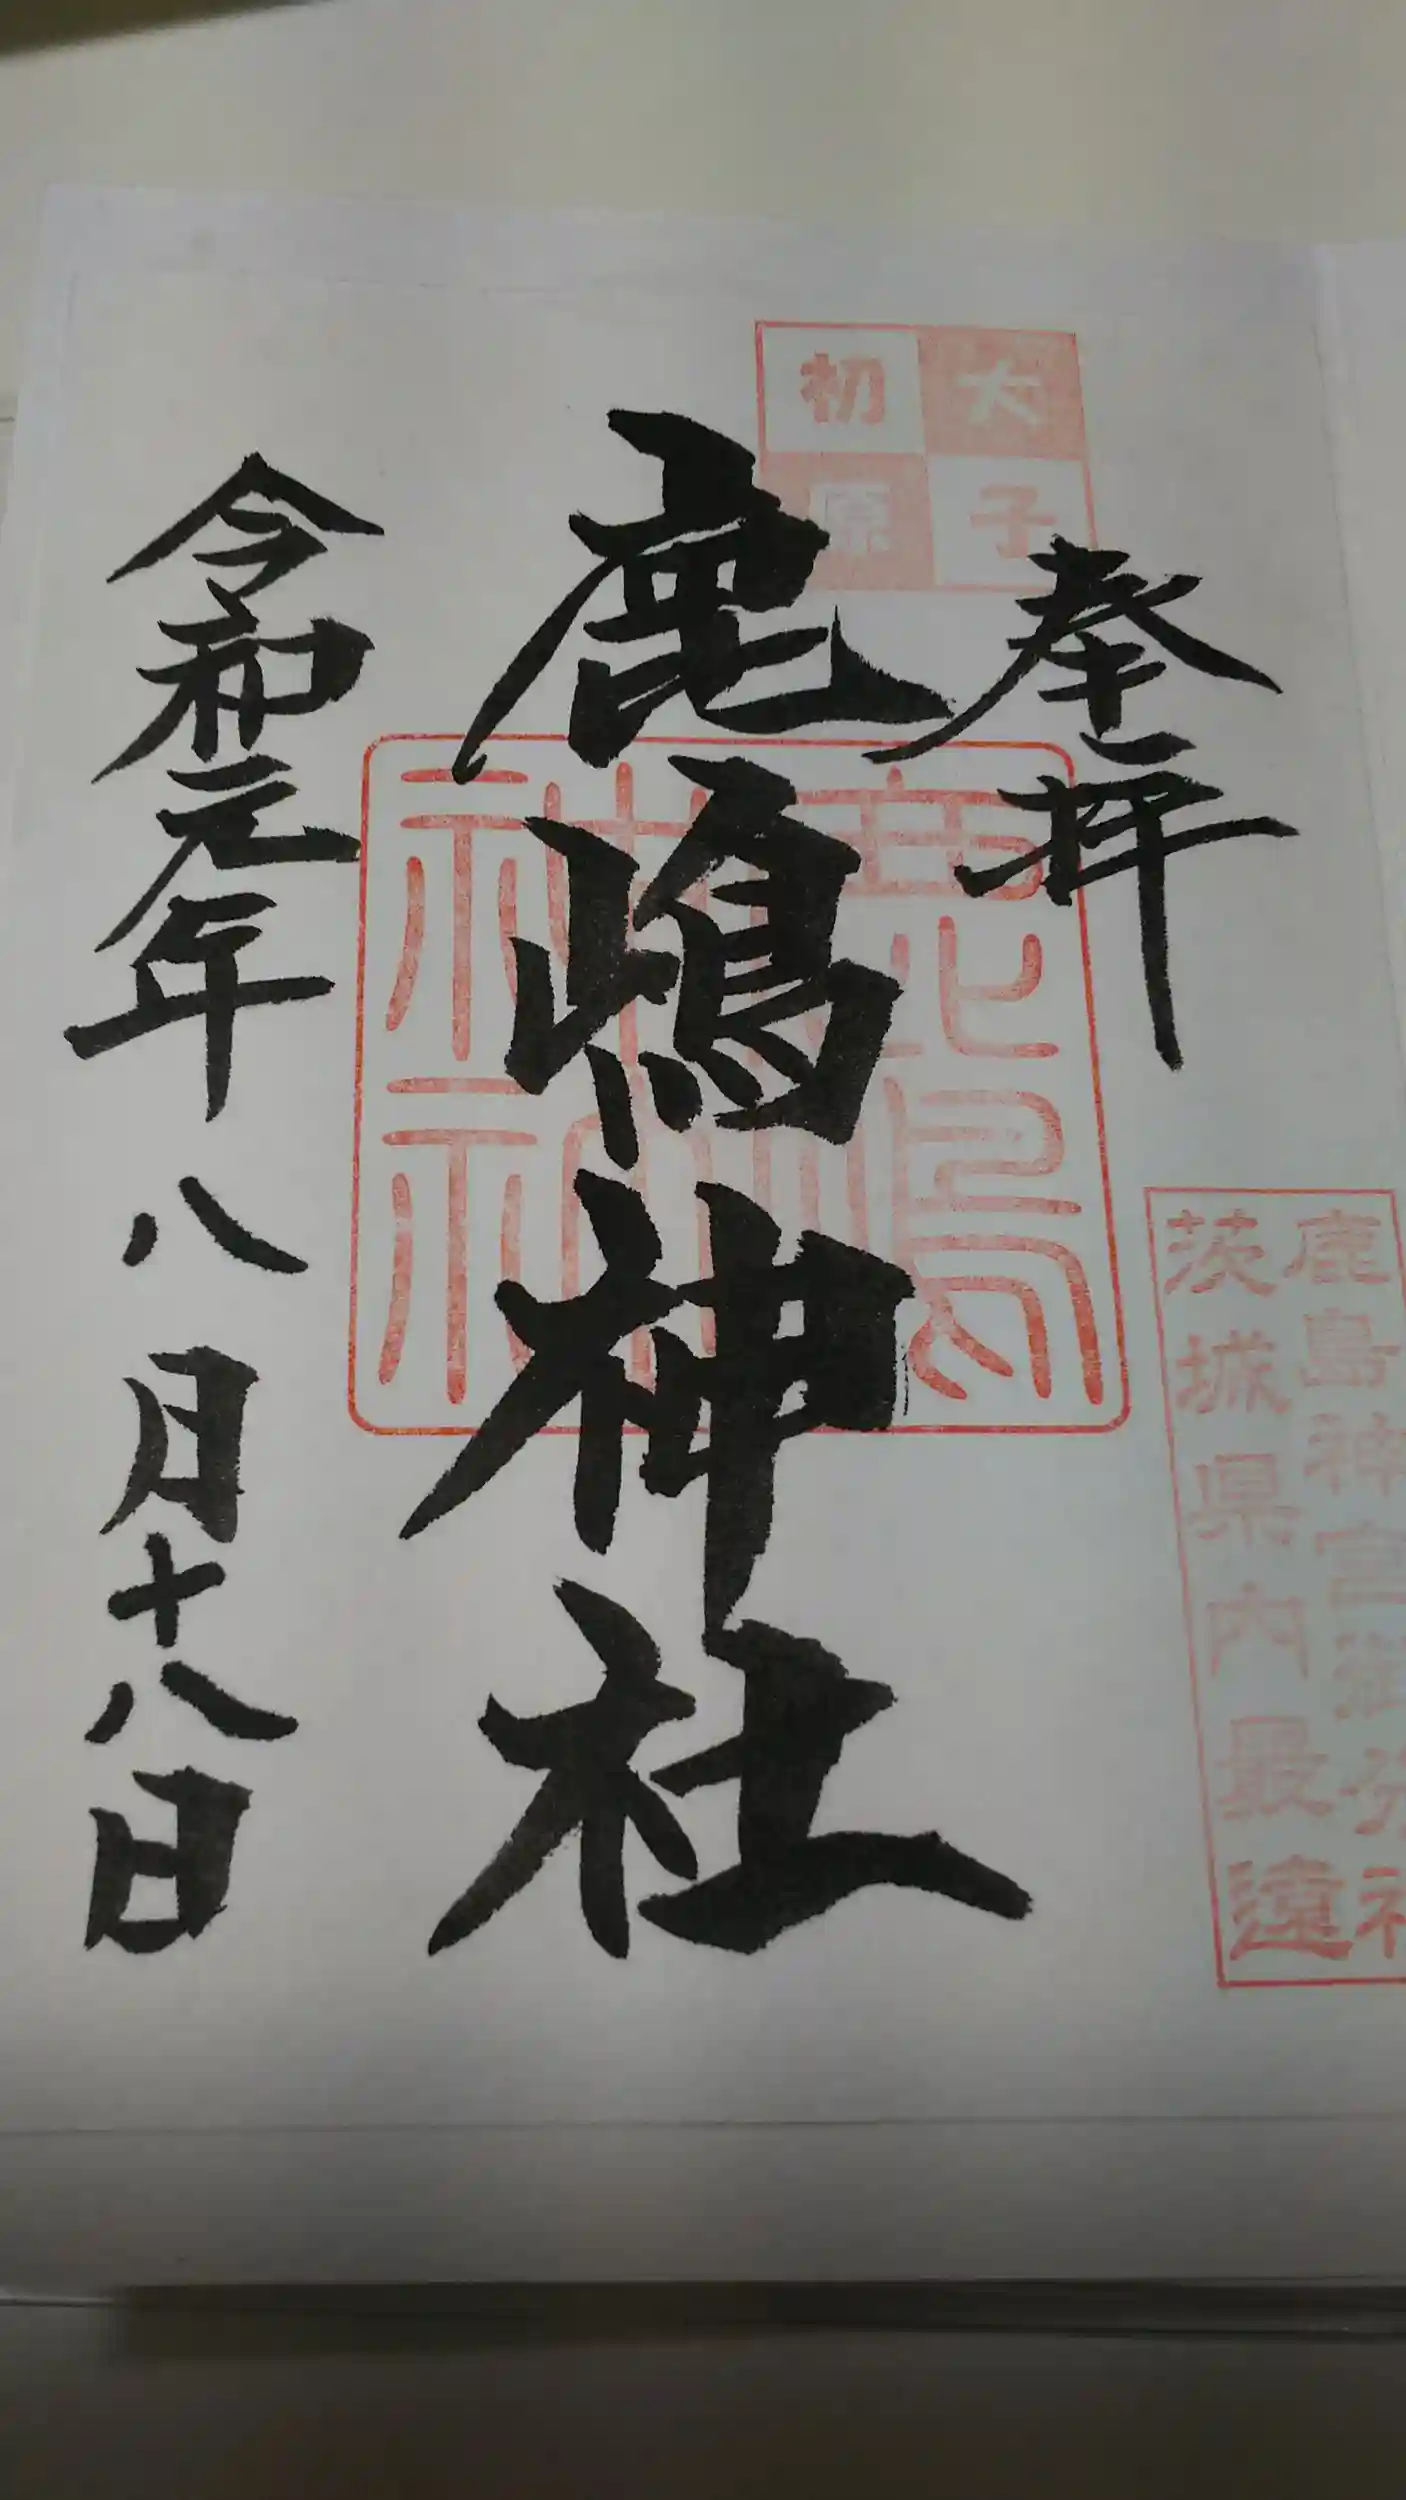 奉拝
大子
初原
鹿島神宮御分社
茨城県内最遠
鹿嶋神社
鹿嶋神社
令和元年八月十八日